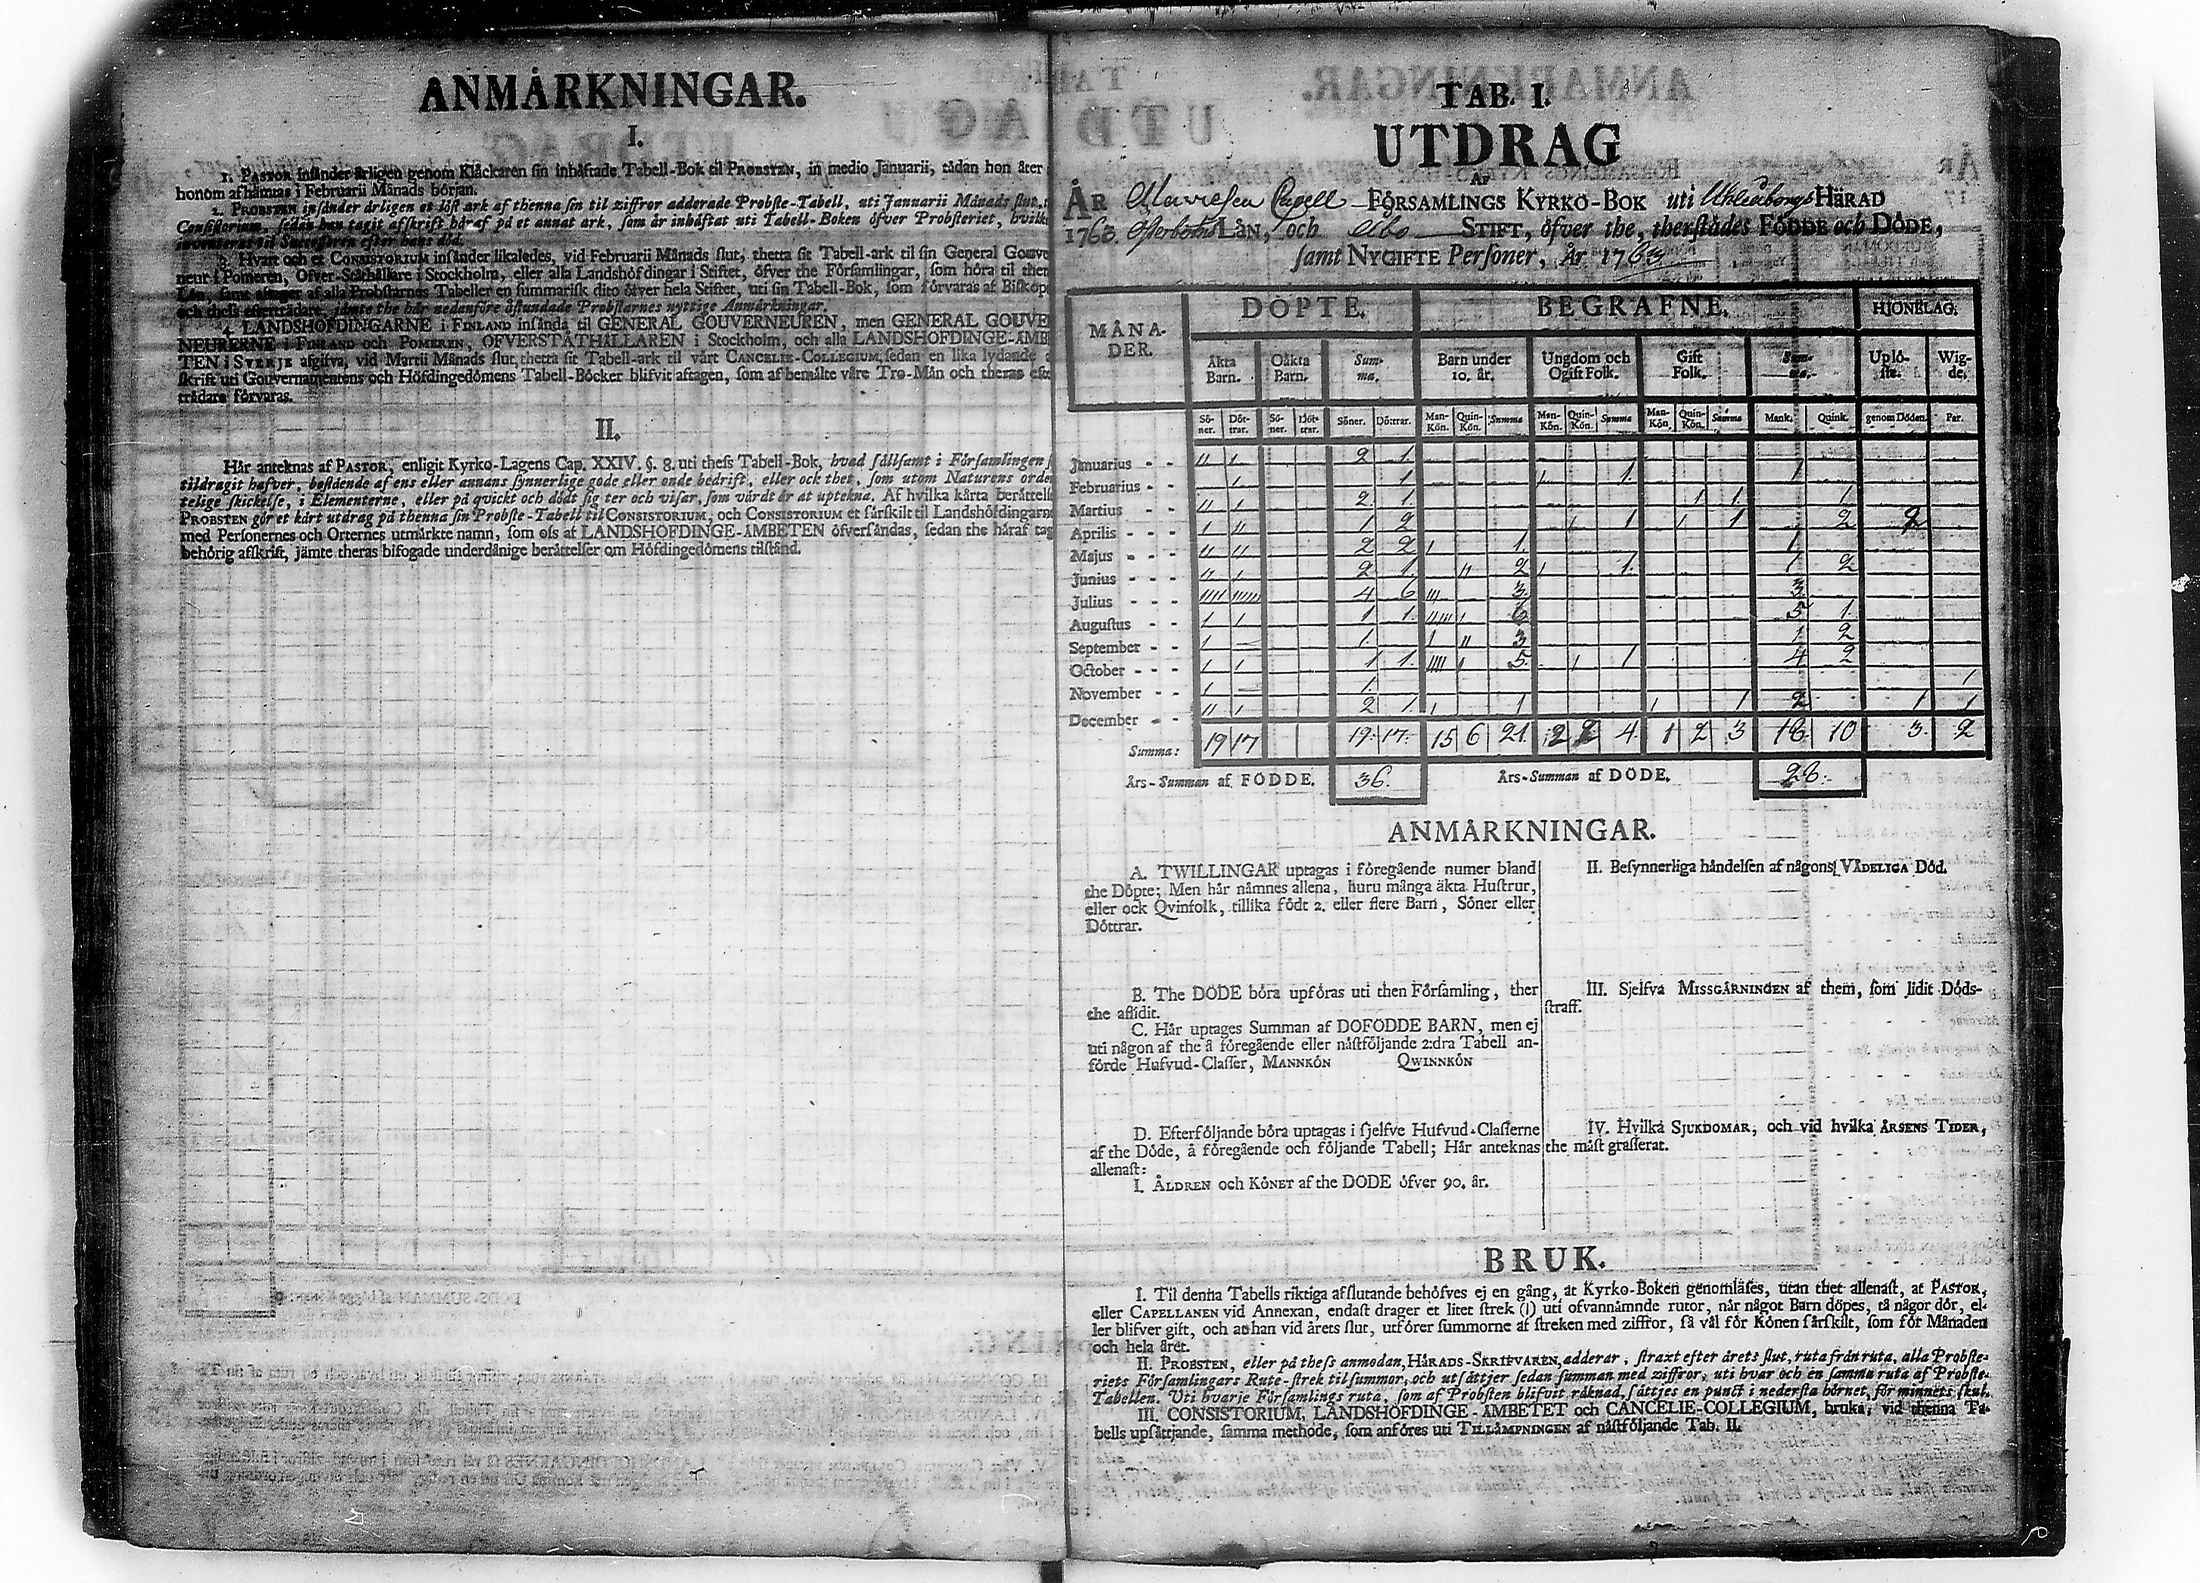 ANMÅRKNINGAR.
I.
1. PASTOR insånder årligen genom Klåckaren sin inhåftade Tabell-Bok til PROBSTEN, in medio Januarii, tådan hon åter
honom afhåmtas i Februarii Månads början.
2. PROBSTEN insånder årligen et löst ark af thenna sin til ziffror adderade Probste-Tabell, uti Januarii Månads slut,
Consistorium, sedan han tagit afskrift håraf på et annat ark, som år inhåftat uti Tabell-Boken öfver Probsteriet, hvilke
inventeras til Successoren efter hans död.
3. Hvart och et CONSISTORIUM insånder likaledes, vid Februarii Månads slut, thetta sit Tabell-ark til sin General Gouver
neur i Pomeren, Öfver-Ståthållare i Stockholm, eller alla Landshöfdingar i Stiftet, öfver the Församlingar, som höra til then
Lån, samt af alla Probstarnes Tabeller en summarisk dito öfver hela Stiftet, uti sin Tabell-Bok, som förvaras af Biskopen
och thess eftertrådare, jåmte the hår nedanföre åstundade Probstarnes nyttige Anmårkningar.
4. LANDSHÖFDINGARNE i FINLAND insånda til GENERAL GOUVERNEUREN, men GENERAL GOUVE
NEURERNE i FINLAND och POMEREN, ÖFVERSTÅTHÅLLAREN i Stockholm, och alla LANDSHÖFDINGE-ÅMB
TEN i SVERJE afgifva, vid Martii Månads slut, thetta sit Tabell-ark til vårt CANCELIE-COLLEGIUM, sedan en lika lydande
skrift uti Gouvernamentens och Höfdingedömens Tabell-Böcker blifvit aftagen, som af bemålte våre Tro-Mån och theras efter
trådare förvaras.
II.
Hår anteknas af PASTOR, enligit Kyrko-Lagens Cap. XXIV. §. 8. uti thess Tabell-Bok, hvad sållsamt i Församlingen
tildragit hafver, bestående af ens eller annans synnerlige gode eller onde bedrift, eller ock thet, som utom Naturens orden
telige skickelse, i Elementerne, eller på qvickt och dödt sig ter och visar, som vårdt år at uptekna. Af hvilka kårta beråttelse
PROBSTEN gör et kårt utdrag på thenna sin Probste-Tabell til CONSISTORIUM, och CONSISTORIUM et sårskilt til Landshöfdingarne
med Personernes och Orternes utmårkte namn, som oss af LANDSHÖFDINGE-ÅMBETEN öfversåndas, sedan the håraf tag
behörig afskrift, jåmte theras bifogade underdånige beråttelser om Höfdingedömens tilstånd.
TAB. I.
UTDRAG
AF
ÅR Capell FÖRSAMLINGS KYRKO-BOK uti Uhleåborgs HÄRAD
1763. Österbotns LÄN, och Åbo STIFT, öfver the, therstådes FÖDDE och DÖDE,
samt NYGIFTE Personer, År 1763
MÅNA-DER. DÖPTE. BEGRAFNE. HJONELAG.
Åkta Barn. Oåkta Barn. Summa. Barn under 10. år. Ungdom och Ogift Folk. Gift Folk. Summa. Uplöste. Wigde.
Söner. Döttrar. Söner. Döttrar. Söner. Döttrar. Mankön. Quinkön. Summa Mankön. Quinkön. Summa Mankön. Quinkön. Summa Mank. Quink. genom Döden. Par.
Januarius - - II I 2 1
Februarius - - I 1 I 1 1
Martius - - II I 2 1 I 1 1
Aprilis - - - I II 1 2 I 1 I 1 2 2
Majus - - - II II 2 2 I 1 1
Junius - - - II I 2 1 II 2 I 1 1 2
Julius - - - IIII IIIIII 4 6 III 3 3
Augustus - - I I 1 1 IIIII I 6 5 1
September - - I 1 I II 3 1 2
October - - - I I 1 1 IIII I 5 I 1 4 2
November - - I 1 1
December - - II I 2 1 I 1 I 1 2 1 1
Summa: 19 17 19 17 15 6 21 2 2 4 1 2 3 18 10 3 2
Års-Summan af FÖDDE. 36. Års-Summan af DÖDE. 28.
ANMÅRKNINGAR.
A. TWILLINGAR uptagas i föregående numer bland
the Döpte; Men hår nåmnes allena, huru många åkta Hustrur,
eller ock Qvinfolk, tillika födt 2. eller flere Barn, Söner eller
Döttrar.
B. The DÖDE böra upföras uti then Församling, ther
the aflidit.
C. Hår uptages Summan af DÖFÖDDE BARN, men ej
uti någon af the å föregående eller nåstföljande 2:dra Tabell an-
förde Hufvud-Classer, MANNKÖN QWINNKÖN
D. Efterföljande böra uptagas i sjelfve Hufvud-Classerne
af the Döde, å föregående och följande Tabell; Hår anteknas
allenast:
I. ÅLDREN och KÖNET af the DÖDE öfver 90. år.
II. Besynnerliga håndelsen af någons VÅDELIGA Död.
III. Sjelfva MISSGÅRNINGEN af them, som lidit Döds-
straff.
IV. Hvilka SJUKDOMAR, och vid hvilka ÅRSENS TIDER,
the måst grasserat.
BRUK.
I. Til denna Tabells riktiga afslutande behöfves ej en gång, at Kyrko-Boken genomläses, utan thet allenast, at PASTOR,
eller CAPELLANEN vid Annexan, endast drager et litet strek (|) uti ofvannåmnde rutor, når något Barn döpes, tå någor dör, el-
ler blifver gift, och at han vid årets slut, utförer summorne af streken med ziffror, så vål för Könen sårskilt, som för Månaden
och hela året.
II. PROBSTEN, eller på thess anmodan, HÅRADS-SKRIFVAREN, adderar, straxt efter årets slut, ruta från ruta, alla Probste-
riets Församlingars Rute-strek til summor, och utsåttjer sedan summan med ziffror, uti hvar och en samma ruta af Probste-
Tabellen. Uti hvarje Församlings ruta, som af Probsten blifvit råknad, såttjes en punct i nedersta hörnet, för minnets skul.
III. CONSISTORIUM, LANDSHÖFDINGE-ÅMBETET och CANCELIE-COLLEGIUM, bruka, vid thenna Ta-
bells upsåttjande, samma methode, som anföres uti TILLÅMPNINGEN af nåstföljande Tab. II.